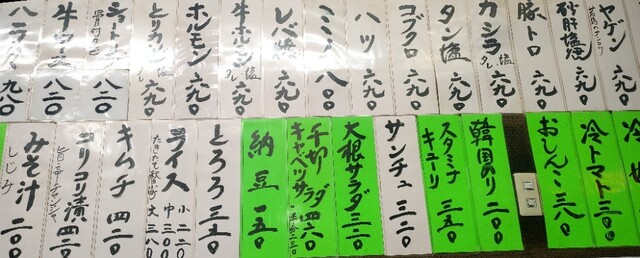 ヤゲン 六九〇
砂肝塩 六九〇
豚トロ 六九〇
カシラ 塩 タレ 六九〇
タン塩 六九〇
コブクロ 六九〇
ハツ 六九〇
ミミ 八〇
レバ焼 六九〇
牛ホルモン 塩 タレ 六九〇
ホルモン 六九〇
とろホルモン 塩 タレ 六九〇
八二〇
八二〇
ハラミ 九八〇
冷トマト 三〇
おしんこ 三八〇
韓国のり 二〇〇
スタミナキューリ 三五〇
サンチュ 三二〇
大根サラダ 三二〇
千切キャベツサラダ 四六〇
納豆 一五〇
とろろ 三五〇
ライス 小 二二〇
中 三〇〇
大 三八〇
キムチ 四二〇
コリコリ漬 四二〇
みそ汁 しじみ 二〇〇